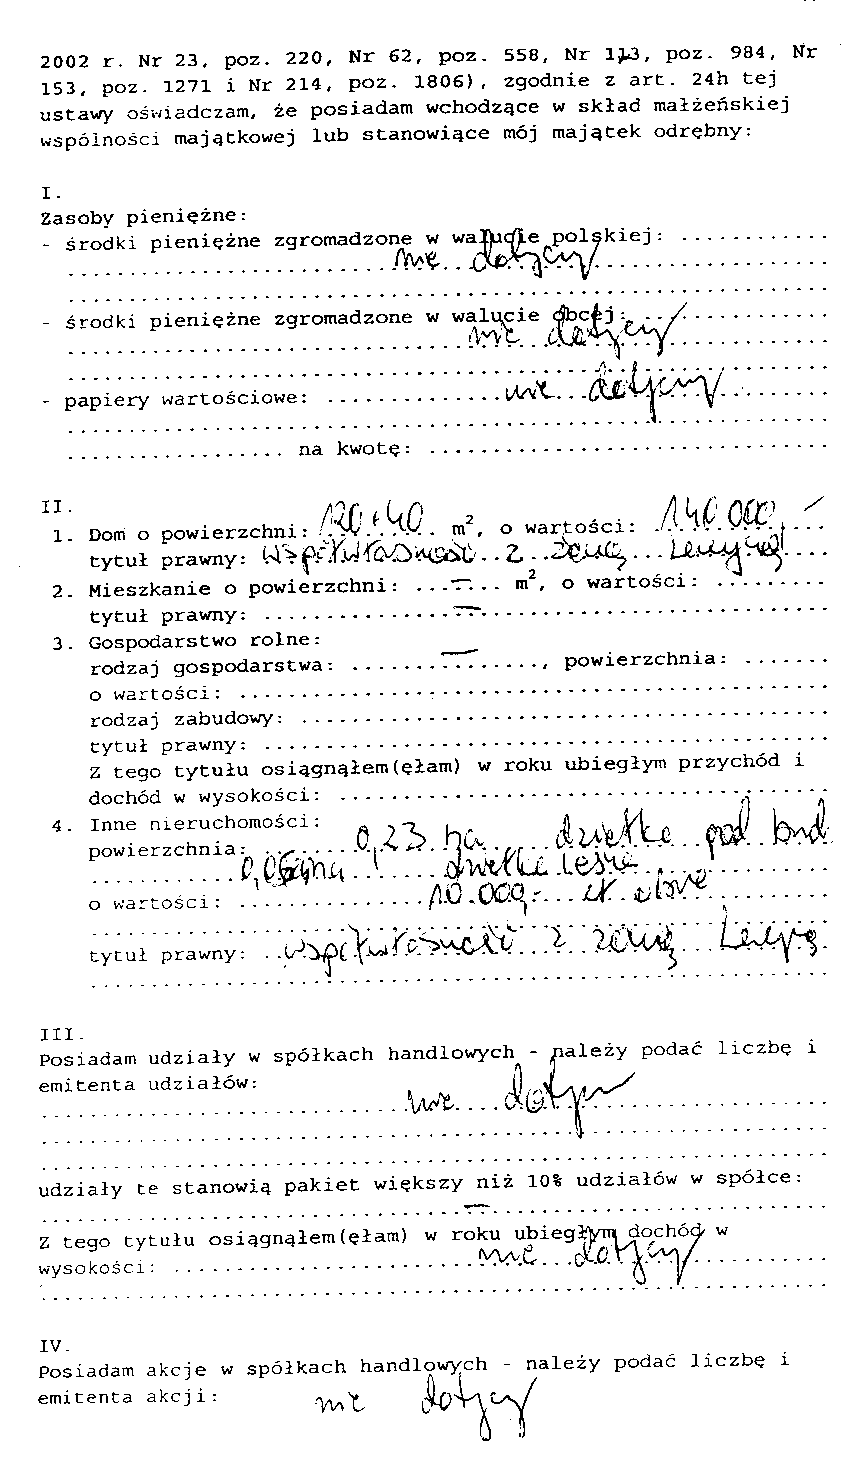 2002 r. Nr 23, poz. 220, Nr 62, poz. 558, Nr 113, poz. 984, Nr
153, poz. 1271 i Nr 214, poz. 1806), zgodnie z art. 24h tej
ustawy oświadczam, że posiadam wchodzące w skład małżeńskiej
wspólności majątkowej lub stanowiące mój majątek odrębny:
I.
Zasoby pieniężne:
- środki pieniężne zgromadzone w walucie polskiej: ............
nie dotyczy
- środki pieniężne zgromadzone w walucie obcej: ...............
nie dotyczy
- papiery wartościowe: ............... nie dotyczy
................. na kwotę: ................................
II.
1. Dom o powierzchni: 120+40 m², o wartości: 140.000,-
tytuł prawny: współwłasność z żoną
2. Mieszkanie o powierzchni: ...—... m², o wartości: .........
tytuł prawny: ................—.............................
3. Gospodarstwo rolne:
rodzaj gospodarstwa: .......—........, powierzchnia: .......
o wartości: ................................................
rodzaj zabudowy: ...........................................
tytuł prawny: ..............................................
Z tego tytułu osiągnąłem(ęłam) w roku ubiegłym przychód i
dochód w wysokości: ........................................
4. Inne nieruchomości:
powierzchnia: 0,23 ha działka pod bud
działka leśna
o wartości: 10.000,-
tytuł prawny: współwłasność z żoną
III.
Posiadam udziały w spółkach handlowych - należy podać liczbę i
emitenta udziałów:
nie dotyczy
udziały te stanowią pakiet większy niż 10% udziałów w spółce:
—
Z tego tytułu osiągnąłem(ęłam) w roku ubiegłym dochód w
wysokości: ............... nie dotyczy
IV.
Posiadam akcje w spółkach handlowych - należy podać liczbę i
emitenta akcji: nie dotyczy